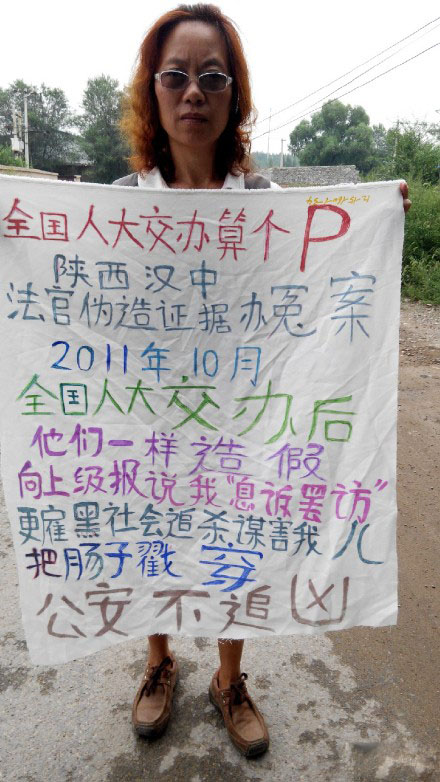 全国人大交办算个P
陕西汉中
法官伪造证据办冤案
2011年10月
全国人大交办后
他们一样造假
向上级报说我“息诉罢访”
更雇黑社会追杀谋害我儿
把肠子戳穿
公安不追凶